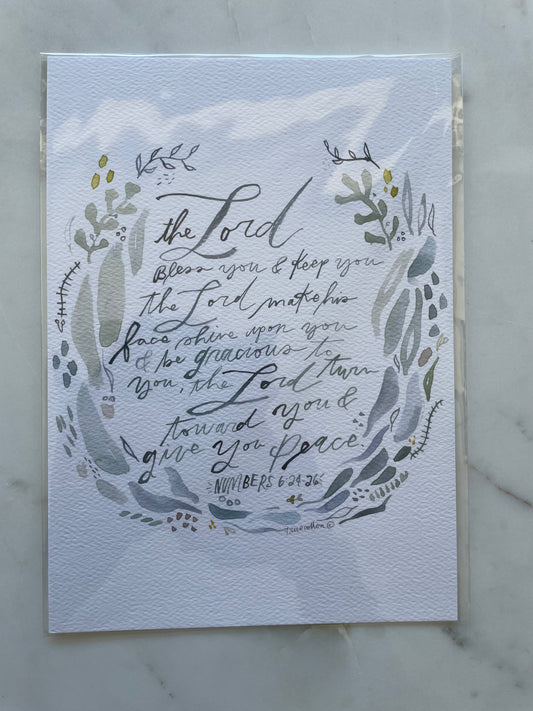 the Lord
Bless you & keep you
the Lord make his
face shine upon you
& be gracious to
you, the Lord turn
toward you &
give you peace
NUMBERS 6:24-26